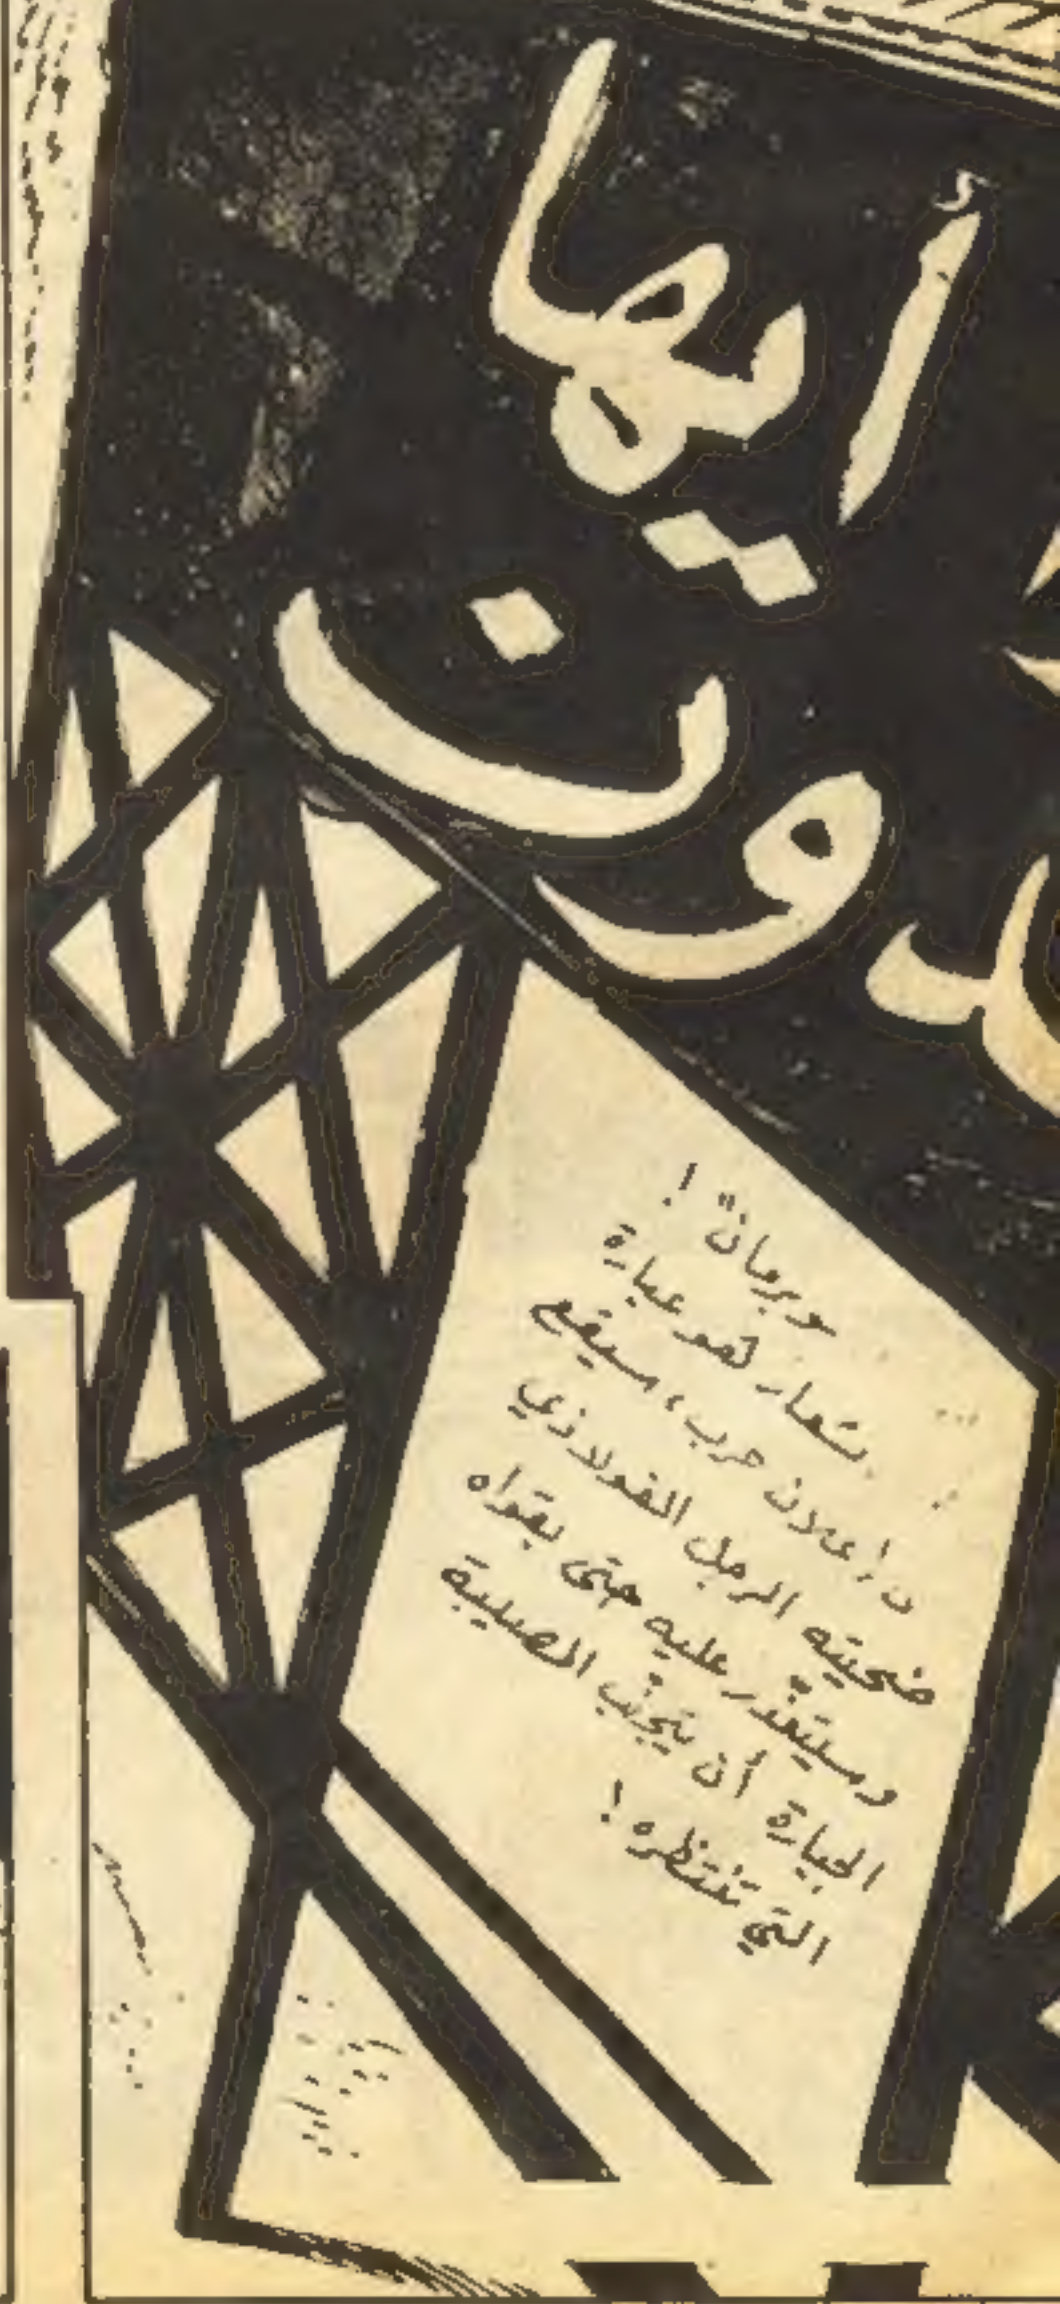 أيها
دون
وبرمان"!
شعار لهو عبارة
إعلان حرب، سيقع
ضحيته الرجل الفولاذي
وسيتعذّر عليه حتى بقواه
الجبارة أن يتجنّب المصيبة
التي تنتظره!